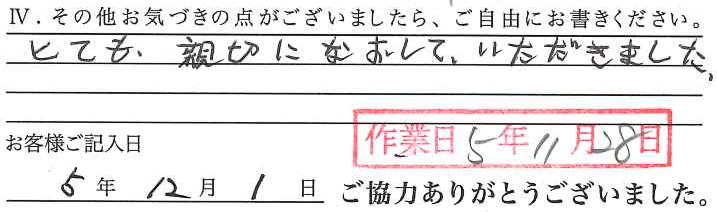 Ⅳ．その他お気づきの点がございましたら、ご自由にお書きください。
とても、親切になおして、いただきました。
お客様ご記入日
作業日 5年11月28日
5年12月1日 ご協力ありがとうございました。